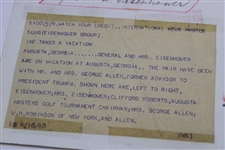 WATCH YOUR CREDIT...INTERNATIONAL NEWS PHOTOS
SLUG (EISENHOWER GROUP)
IKE TAKES A VACATION
AUGUSTA, GEORGIA......GENERAL AND MRS. EISENHOWER
ARE ON VACATION AT AUGUSTA, GEORGIA.. THE PAIR HAVE BEEN
WITH MR. AND MRS. GEORGE ALLEN, FORMER ADVISOR TO
PRESIDENT TRUMAN. SHOWN HERE ARE, LEFT TO RIGHT,
EISENHOWER; MRS. EISENHOWER; CLIFFORD ROBERTS, AUGUSTA
MASTERS GOLF TOURNAMENT CHAIRMAN; MRS. GEORGE ALLEN;
W.R. ROBINSON OF NEW YORK, AND ALLEN.